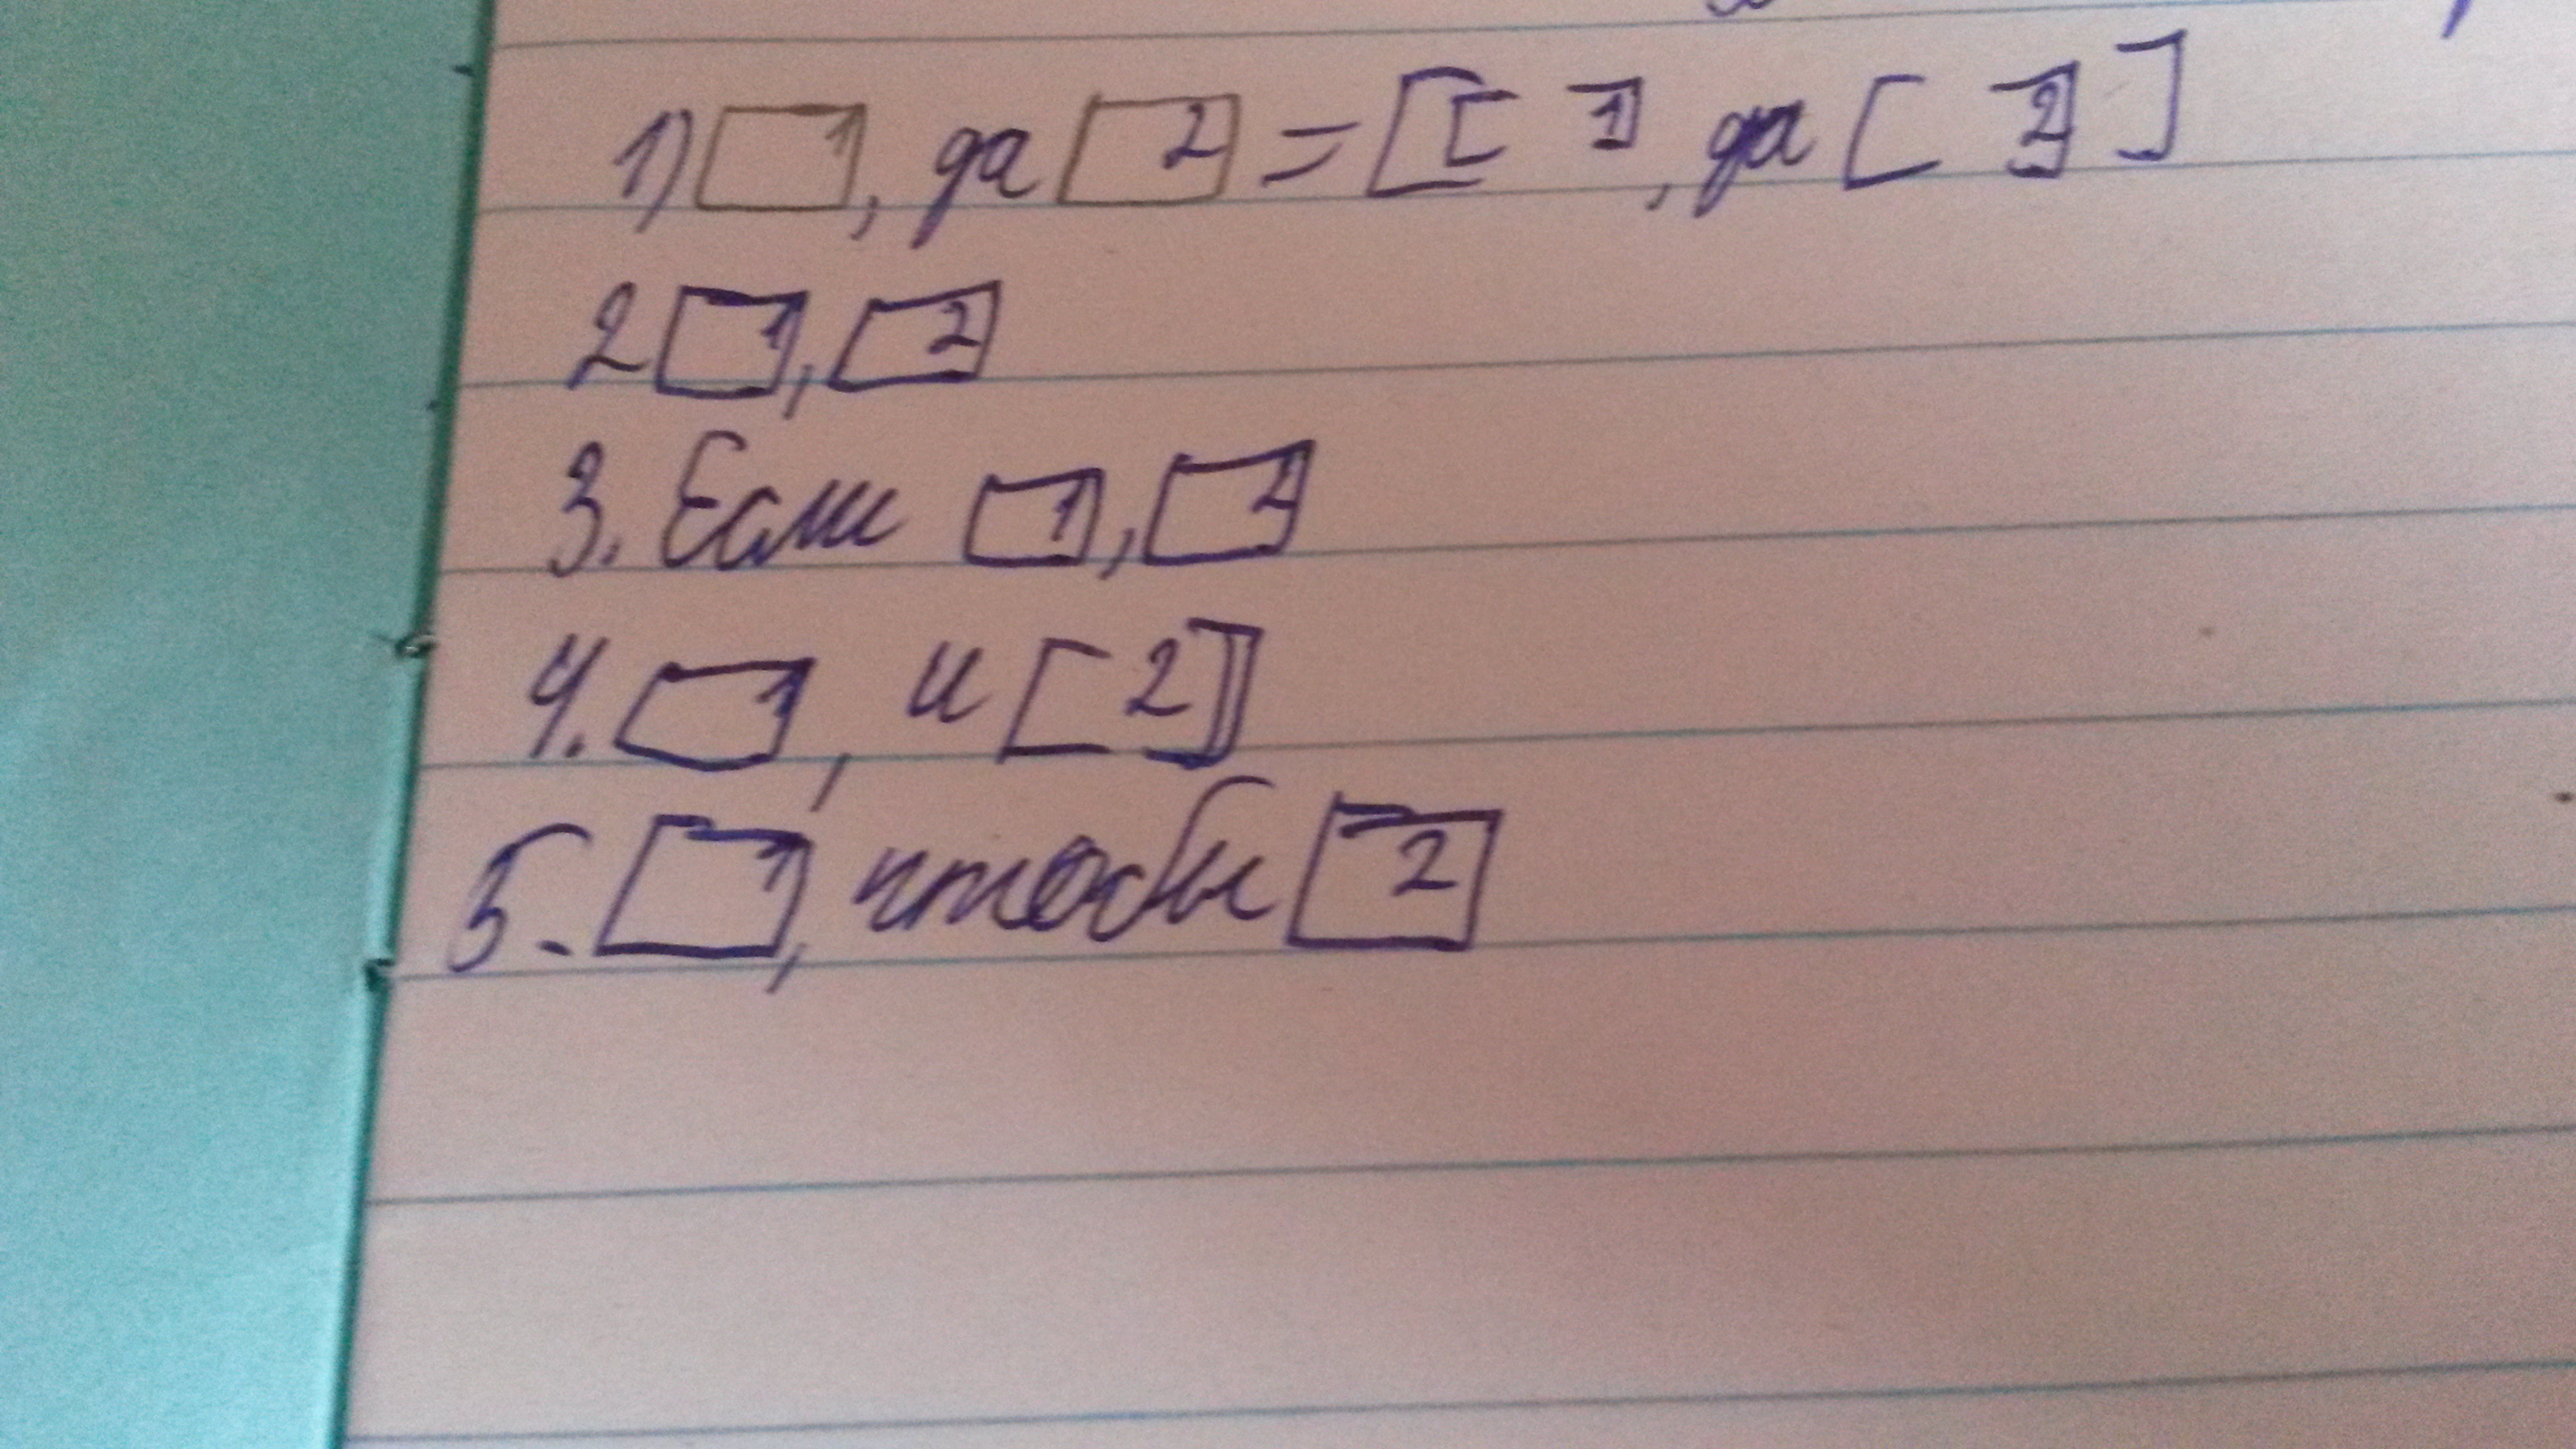 1) [ 1], да [ 2] = [[ 1], да [ 2]]
2 [ 1], [ 2]
3. Если [ 1], [ 2]
4. [ 1], и [ 2]
5. [ 1], чтобы [ 2]